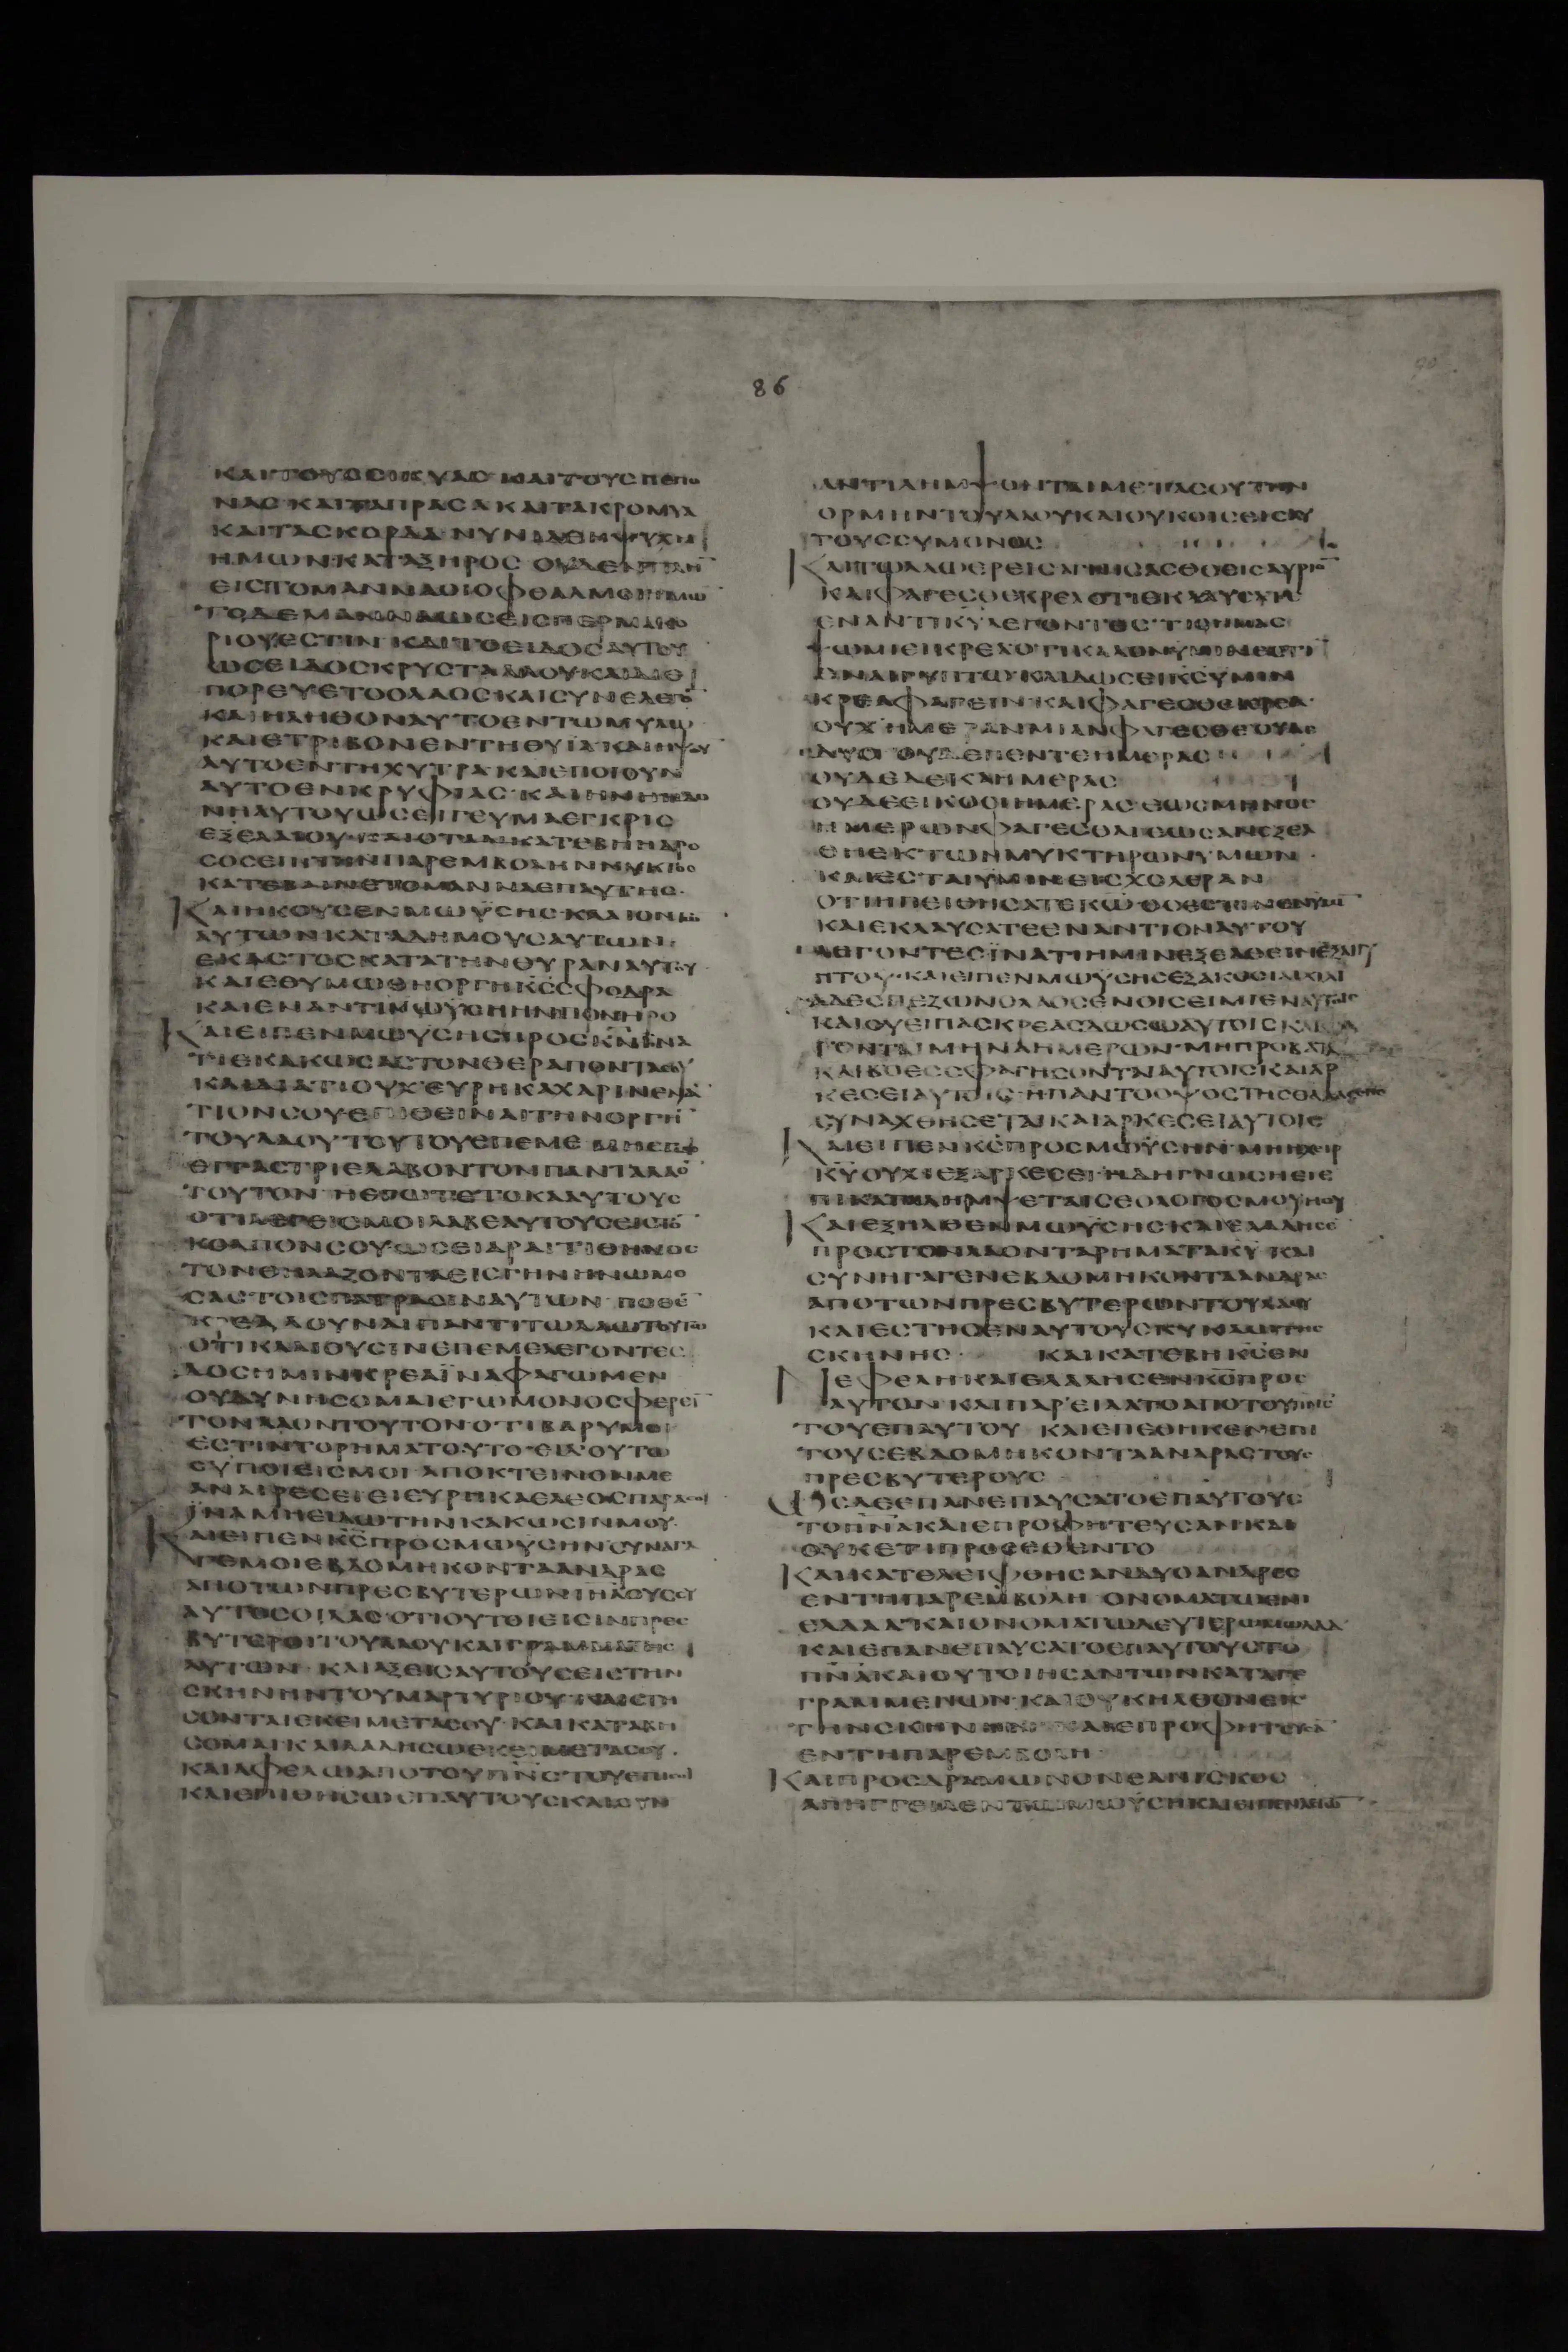 86
ΚΑΙΤΟΥΣΣΙΚΥΑΣ ΚΑΙΤΟΥΣΠΕΠΟ
ΝΑΣ ΚΑΙΤΑΠΡΑΣΑΚΑΙΤΑΚΡΟΜΥΑ
ΚΑΙΤΑΣΚΟΡΔΑ ΝΥΝΙΔΕΗΨΥΧΗ
ΗΜΩΝ ΚΑΤΑΞΗΡΟΣ ΟΥΔΕΝΠΛΗ̅
ΕΙΣΤΟΜΑΝΝΑΟΙΟΦΘΑΛΜΟΙΗΜΩ
ΤΟΔΕΜΑΝΝΑΩΣΕΙΣΠΕΡΜΑΚΟ
ΡΙΟΥΕΣΤΙΝ ΚΑΙΤΟΕΙΔΟΣΑΥΤΟΥ
ΩΣΕΙΔΟΣΚΡΥΣΤΑΛΛΟΥΚΑΙΔΙΕ
ΠΟΡΕΥΕΤΟΟΛΑΟΣΚΑΙΣΥΝΕΛΕΓΟ̅
ΚΑΙΗΛΗΘΟΝΑΥΤΟΕΝΤΩΜΥΛΩ
ΚΑΙΕΤΡΙΒΟΝΕΝΤΗΘΥΙΑ ΚΑΙΗΨΟΥ
ΑΥΤΟΕΝΤΗΧΥΤΡΑ ΚΑΙΕΠΟΙΟΥΝ
ΑΥΤΟΕΝΚΡΥΦΙΑΣ ΚΑΙΗΝΗΗΔΟ
ΝΗΑΥΤΟΥΩΣΕΙΓΕΥΜΑΕΓΚΡΙΣ
ΕΞΕΛΑΙΟΥ ΚΑΙΟΤΑΝΚΑΤΕΒΗΗΔΡΟ
ΣΟΣΕΠΙΤΗΝΠΑΡΕΜΒΟΛΗΝΝΥΚΤΟΣ
ΚΑΤΕΒΑΙΝΕΤΟΜΑΝΝΑΕΠΑΥΤΗΣ
ΚΑΙΗΚΟΥΣΕΝΜΩΫΣΗΣ ΚΛΑΙΟΝΤΩ
ΑΥΤΩΝΚΑΤΑΔΗΜΟΥΣΑΥΤΩΝ
ΕΚΑΣΤΟΣΚΑΤΑΤΗΝΘΥΡΑΝΑΥΤΟΥ
ΚΑΙΕΘΥΜΩΘΗΟΡΓΗΚ̅Σ̅ΣΦΟΔΡΑ
ΚΑΙΕΝΑΝΤΙΜΩΫΣΗΗΝΠΟΝΗΡΟ
ΚΑΙΕΙΠΕΝΜΩΫΣΗΣΠΡΟΣΚ̅Ν̅ΪΝΑ
ΤΙΕΚΑΚΩΣΑΣΤΟΝΘΕΡΑΠΟΝΤΑΣΟΥ
ΚΑΙΔΙΑΤΙΟΥΧΕΥΡΗΚΑΧΑΡΙΝΕΝΑ̅
ΤΙΟΝΣΟΥΕΠΙΘΕΙΝΑΙΤΗΝΟΡΓΗ̅
ΤΟΥΛΑΟΥΤΟΥΤΟΥΕΠΕΜΕ ΜΗΕΓΩ
ΕΝΓΑΣΤΡΙΕΛΑΒΟΝΤΟΝΠΑΝΤΑΛΑΟ̅
ΤΟΥΤΟΝ ΗΕΓΩΤΕΤΟΚΑΑΥΤΟΥΣ
ΟΤΙΛΕΓΕΙΣΜΟΙΛΑΒΕΑΥΤΟΥΣΕΙΣΤΟ̅
ΚΟΛΠΟΝΣΟΥΩΣΕΙΑΡΑΙΤΙΘΗΝΟΣ
ΤΟΝΘΗΛΑΖΟΝΤΑΕΙΣΤΗΝΓΗΝΗΝΩΜΟ
ΣΑΣΤΟΙΣΠΑΤΡΑΣΙΝΑΥΤΩΝ ΠΟΘΕ̅
ΚΡΕΑΔΟΥΝΑΙΠΑΝΤΙΤΩΛΑΩΤΟΥΤΩ
ΟΤΙΚΛΑΙΟΥΣΙΝΕΠΕΜΕΛΕΓΟΝΤΕΣ
ΔΟΣΗΜΙΝΚΡΕΑΪΝΑΦΑΓΩΜΕΝ
ΟΥΔΥΝΗΣΟΜΑΙΕΓΩΜΟΝΟΣΦΕΡΕΙ̅
ΤΟΝΛΑΟΝΤΟΥΤΟΝΟΤΙΒΑΡΥΜΟΙ
ΕΣΤΙΝΤΟΡΗΜΑΤΟΥΤΟ ΕΙΔΟΥΤΩ
ΣΥΠΟΙΕΙΣΜΟΙ ΑΠΟΚΤΕΙΝΟΝΜΕ
ΑΝΑΙΡΕΣΕΙΕΙΕΥΡΗΚΑΕΛΕΟΣΠΑΡΑΣΟΙ
ΪΝΑΜΗΕΙΔΩΤΗΝΚΑΚΩΣΙΝΜΟΥ
ΚΑΙΕΙΠΕΝΚ̅Σ̅ΠΡΟΣΜΩΫΣΗΝ ΣΥΝΑΓΑ
ΓΕΜΟΙΕΒΔΟΜΗΚΟΝΤΑΑΝΔΡΑΣ
ΑΠΟΤΩΝΠΡΕΣΒΥΤΕΡΩΝΙΗΛΟΥΣΣΥ
ΑΥΤΟΣΟΙΔΑΣ ΟΤΙΟΥΤΟΙΕΙΣΙΝΠΡΕΣ
ΒΥΤΕΡΟΙΤΟΥΛΑΟΥΚΑΙΓΡΑΜΜΑΤΕΙΣ
ΑΥΤΩΝ ΚΑΙΑΞΕΙΣΑΥΤΟΥΣΕΙΣΤΗΝ
ΣΚΗΝΗΝΤΟΥΜΑΡΤΥΡΙΟΥ ΚΑΙΣΤΗ
ΣΟΝΤΑΙΕΚΕΙΜΕΤΑΣΟΥ ΚΑΙΚΑΤΑΒΗ
ΣΟΜΑΙΚΑΙΛΑΛΗΣΩΕΚΕΙΜΕΤΑΣΟΥ
ΚΑΙΑΦΕΛΩΑΠΟΤΟΥΠ̅Ν̅Σ̅ΤΟΥΕΠΙΣΟΙ
ΚΑΙΕΠΙΘΗΣΩΕΠΑΥΤΟΥΣΚΑΙΣΥΝ
ΑΝΤΙΛΗΜΨΟΝΤΑΙΜΕΤΑΣΟΥΤΗΝ
ΟΡΜΗΝΤΟΥΛΑΟΥΚΑΙΟΥΚΟΙΣΕΙΣΑΥ
ΤΟΥΣΣΥΜΟΝΟΣ
ΚΑΙΤΩΛΑΩΕΡΕΙΣΑΓΝΙΣΑΣΘΕΕΙΣΑΥΡΙΟ̅
ΚΑΙΦΑΓΕΣΘΕΚΡΕΑ ΟΤΙΕΚΛΑΥΣΑΤΕ
ΕΝΑΝΤΙΚ̅Υ̅ΛΕΓΟΝΤΕΣ ΤΙΣΗΜΑΣ
ΨΩΜΙΕΙΚΡΕΑΟΤΙΚΑΛΟΝΥΜΙΝΕΣΤΙ
ΕΝΑΙΓΥΠΤΩ ΚΑΙΔΩΣΕΙΚ̅Σ̅ΥΜΙΝ
ΚΡΕΑΦΑΓΕΙΝ ΚΑΙΦΑΓΕΣΘΕΚΡΕΑ
ΟΥΧΗΜΕΡΑΝΜΙΑΝΦΑΓΕΣΘΕΟΥΔΕ
ΔΥΟ ΟΥΔΕΠΕΝΤΕΗΜΕΡΑΣ
ΟΥΔΕΔΕΚΑΗΜΕΡΑΣ
ΟΥΔΕΕΙΚΟΣΙΗΜΕΡΑΣ ΕΩΣΜΗΝΟΣ
ΗΜΕΡΩΝΦΑΓΕΣΘΑΙΕΩΣΑΝΕΞΕΛ
ΘΗΕΚΤΩΝΜΥΚΤΗΡΩΝΥΜΩΝ
ΚΑΙΕΣΤΑΙΥΜΙΝΕΙΣΧΟΛΕΡΑΝ
ΟΤΙΗΠΕΙΘΗΣΑΤΕΚ̅Ω̅ ΟΣΕΣΤΙΝΕΝΥΜΙ̅
ΚΑΙΕΚΛΑΥΣΑΤΕΕΝΑΝΤΙΟΝΑΥΤΟΥ
ΛΕΓΟΝΤΕΣΪΝΑΤΙΗΜΙΝΕΞΕΛΘΕΙΝΕΞΑΙΓΥ
ΠΤΟΥ ΚΑΙΕΙΠΕΝΜΩΫΣΗΣΕΞΑΚΟΣΙΑΙΧΙΛΙ
ΑΔΕΣΠΕΖΩΝΟΛΑΟΣΕΝΟΙΣΕΙΜΙΕΝΑΥΤΟΙΣ
ΚΑΙΣΥΕΙΠΑΣΚΡΕΑΣΔΩΣΩΑΥΤΟΙΣΚΑΙΦΑ
ΓΟΝΤΑΙΜΗΝΑΗΜΕΡΩΝ ΜΗΠΡΟΒΑΤΑ
ΚΑΙΒΟΕΣΣΦΑΓΗΣΟΝΤΑΙΑΥΤΟΙΣΚΑΙΑΡ
ΚΕΣΕΙΑΥΤΟΙΣ ΗΠΑΝΤΟΟΨΟΣΤΗΣΘΑΛΑΣΣΗΣ
ΣΥΝΑΧΘΗΣΕΤΑΙΚΑΙΑΡΚΕΣΕΙΑΥΤΟΙΣ
ΚΑΙΕΙΠΕΝΚ̅Σ̅ΠΡΟΣΜΩΫΣΗΝ ΜΗΗΧΕΙΡ
Κ̅Υ̅ΟΥΧΙΕΞΑΡΚΕΣΕΙ ΗΔΗΓΝΩΣΗΕΙΕ
ΠΙΚΑΤΑΛΗΜΨΕΤΑΙΣΕΟΛΟΓΟΣΜΟΥΗΟΥ
ΚΑΙΕΞΗΛΘΕΝΜΩΫΣΗΣΚΑΙΕΛΑΛΗΣΕ
ΠΡΟΣΤΟΝΛΑΟΝΤΑΡΗΜΑΤΑΚ̅Υ̅ ΚΑΙ
ΣΥΝΗΓΑΓΕΝΕΒΔΟΜΗΚΟΝΤΑΑΝΔΡΑΣ
ΑΠΟΤΩΝΠΡΕΣΒΥΤΕΡΩΝΤΟΥΛΑΟΥ
ΚΑΙΕΣΤΗΣΕΝΑΥΤΟΥΣΚΥΚΛΩΤΗΣ
ΣΚΗΝΗΣ ΚΑΙΚΑΤΕΒΗΚ̅Σ̅ΕΝ
ΝΕΦΕΛΗΚΑΙΕΛΑΛΗΣΕΝΚ̅Σ̅ΠΡΟΣ
ΑΥΤΟΝ ΚΑΙΠΑΡΕΙΛΑΤΟΑΠΟΤΟΥΠ̅Ν̅Σ̅
ΤΟΥΕΠΑΥΤΟΥ ΚΑΙΕΠΕΘΗΚΕΝΕΠΙ
ΤΟΥΣΕΒΔΟΜΗΚΟΝΤΑΑΝΔΡΑΣΤΟΥΣ
ΠΡΕΣΒΥΤΕΡΟΥΣ
ΩΣΔΕΕΠΑΝΕΠΑΥΣΑΤΟΕΠΑΥΤΟΥΣ
ΤΟΠ̅Ν̅Α̅ΚΑΙΕΠΡΟΦΗΤΕΥΣΑΝ ΚΑΙ
ΟΥΚΕΤΙΠΡΟΣΕΘΕΝΤΟ
ΚΑΙΚΑΤΕΛΕΙΦΘΗΣΑΝΔΥΟΑΝΔΡΕΣ
ΕΝΤΗΠΑΡΕΜΒΟΛΗ ΟΝΟΜΑΤΩΕΝΙ
ΕΛΔΑΔ ΚΑΙΟΝΟΜΑΤΩΔΕΥΤΕΡΩΜΩΔΑΔ
ΚΑΙΕΠΑΝΕΠΑΥΣΑΤΟΕΠΑΥΤΟΥΣΤΟ
Π̅Ν̅Α̅ΚΑΙΟΥΤΟΙΗΣΑΝΤΩΝΚΑΤΑΓΕ
ΓΡΑΜΜΕΝΩΝ ΚΑΙΟΥΚΗΛΘΟΝΕΙΣ
ΤΗΝΣΚΗΝΗΝ ΚΑΙΕΠΡΟΦΗΤΕΥΣΑ̅
ΕΝΤΗΠΑΡΕΜΒΟΛΗ
ΚΑΙΠΡΟΣΔΡΑΜΩΝΟΝΕΑΝΙΣΚΟΣ
ΑΠΗΓΓΕΙΛΕΝΤΩΜΩΫΣΗΚΑΙΕΙΠΕΝΛΕΓΩ̅